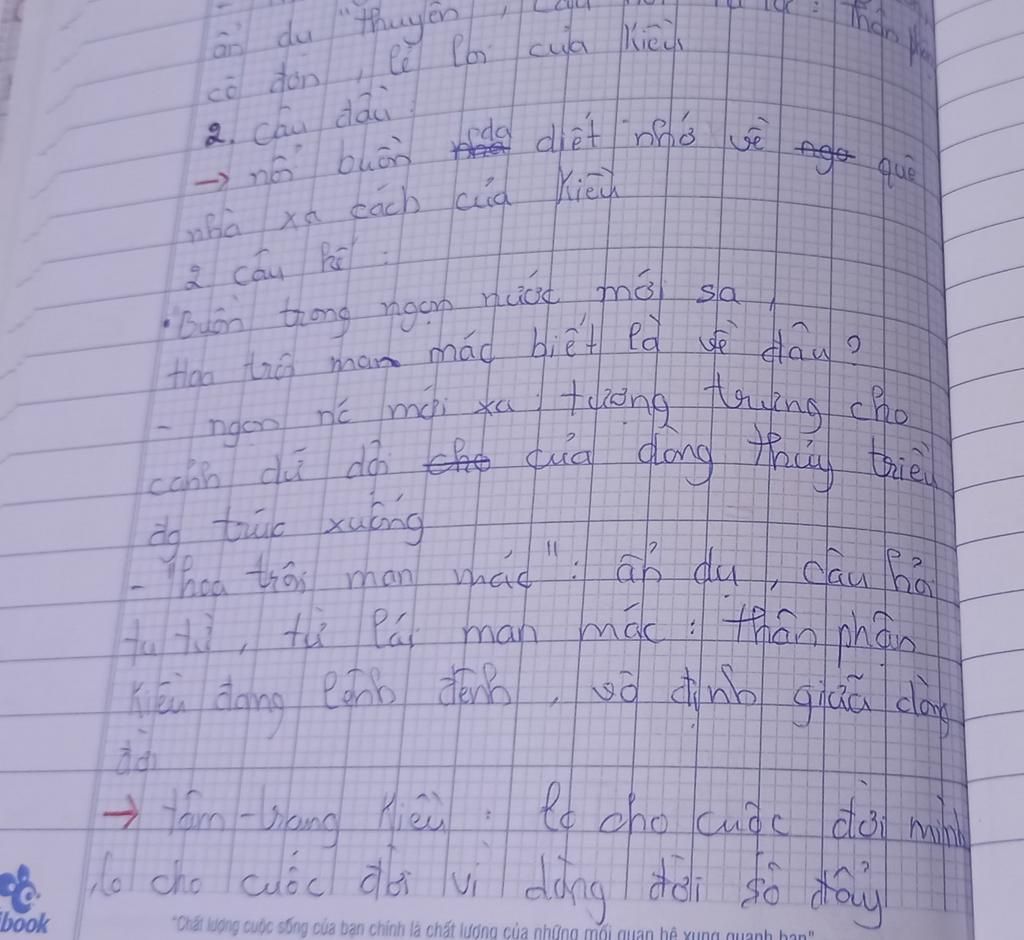 ẩn dụ "thuyền",
cô đơn, lẻ loi của Kiều
2. câu đầu:
→ nỗi buồn da diết nhớ về quê
nhà xa cách của Kiều
2 câu kế:
• Buồn trông ngọn nước mới sa,
Hoa trôi man mác biết là về đâu?
- ngọn nc mới xa: tượng trưng cho
cảnh dữ dội của dòng thủy triều
đg trút xuống
- "hoa trôi man mác": ẩn dụ, câu hỏi
tu từ, từ láy man mác: thân phận
Kiều đang lênh đênh, vô định giữa dòng
đời
→ tâm trạng Kiều: lo cho cuộc đời mình
lo cho cuộc đời vì dòng đời xô đẩy
book
"Chất lượng cuộc sống của bạn chính là chất lượng của những mối quan hệ xung quanh bạn"